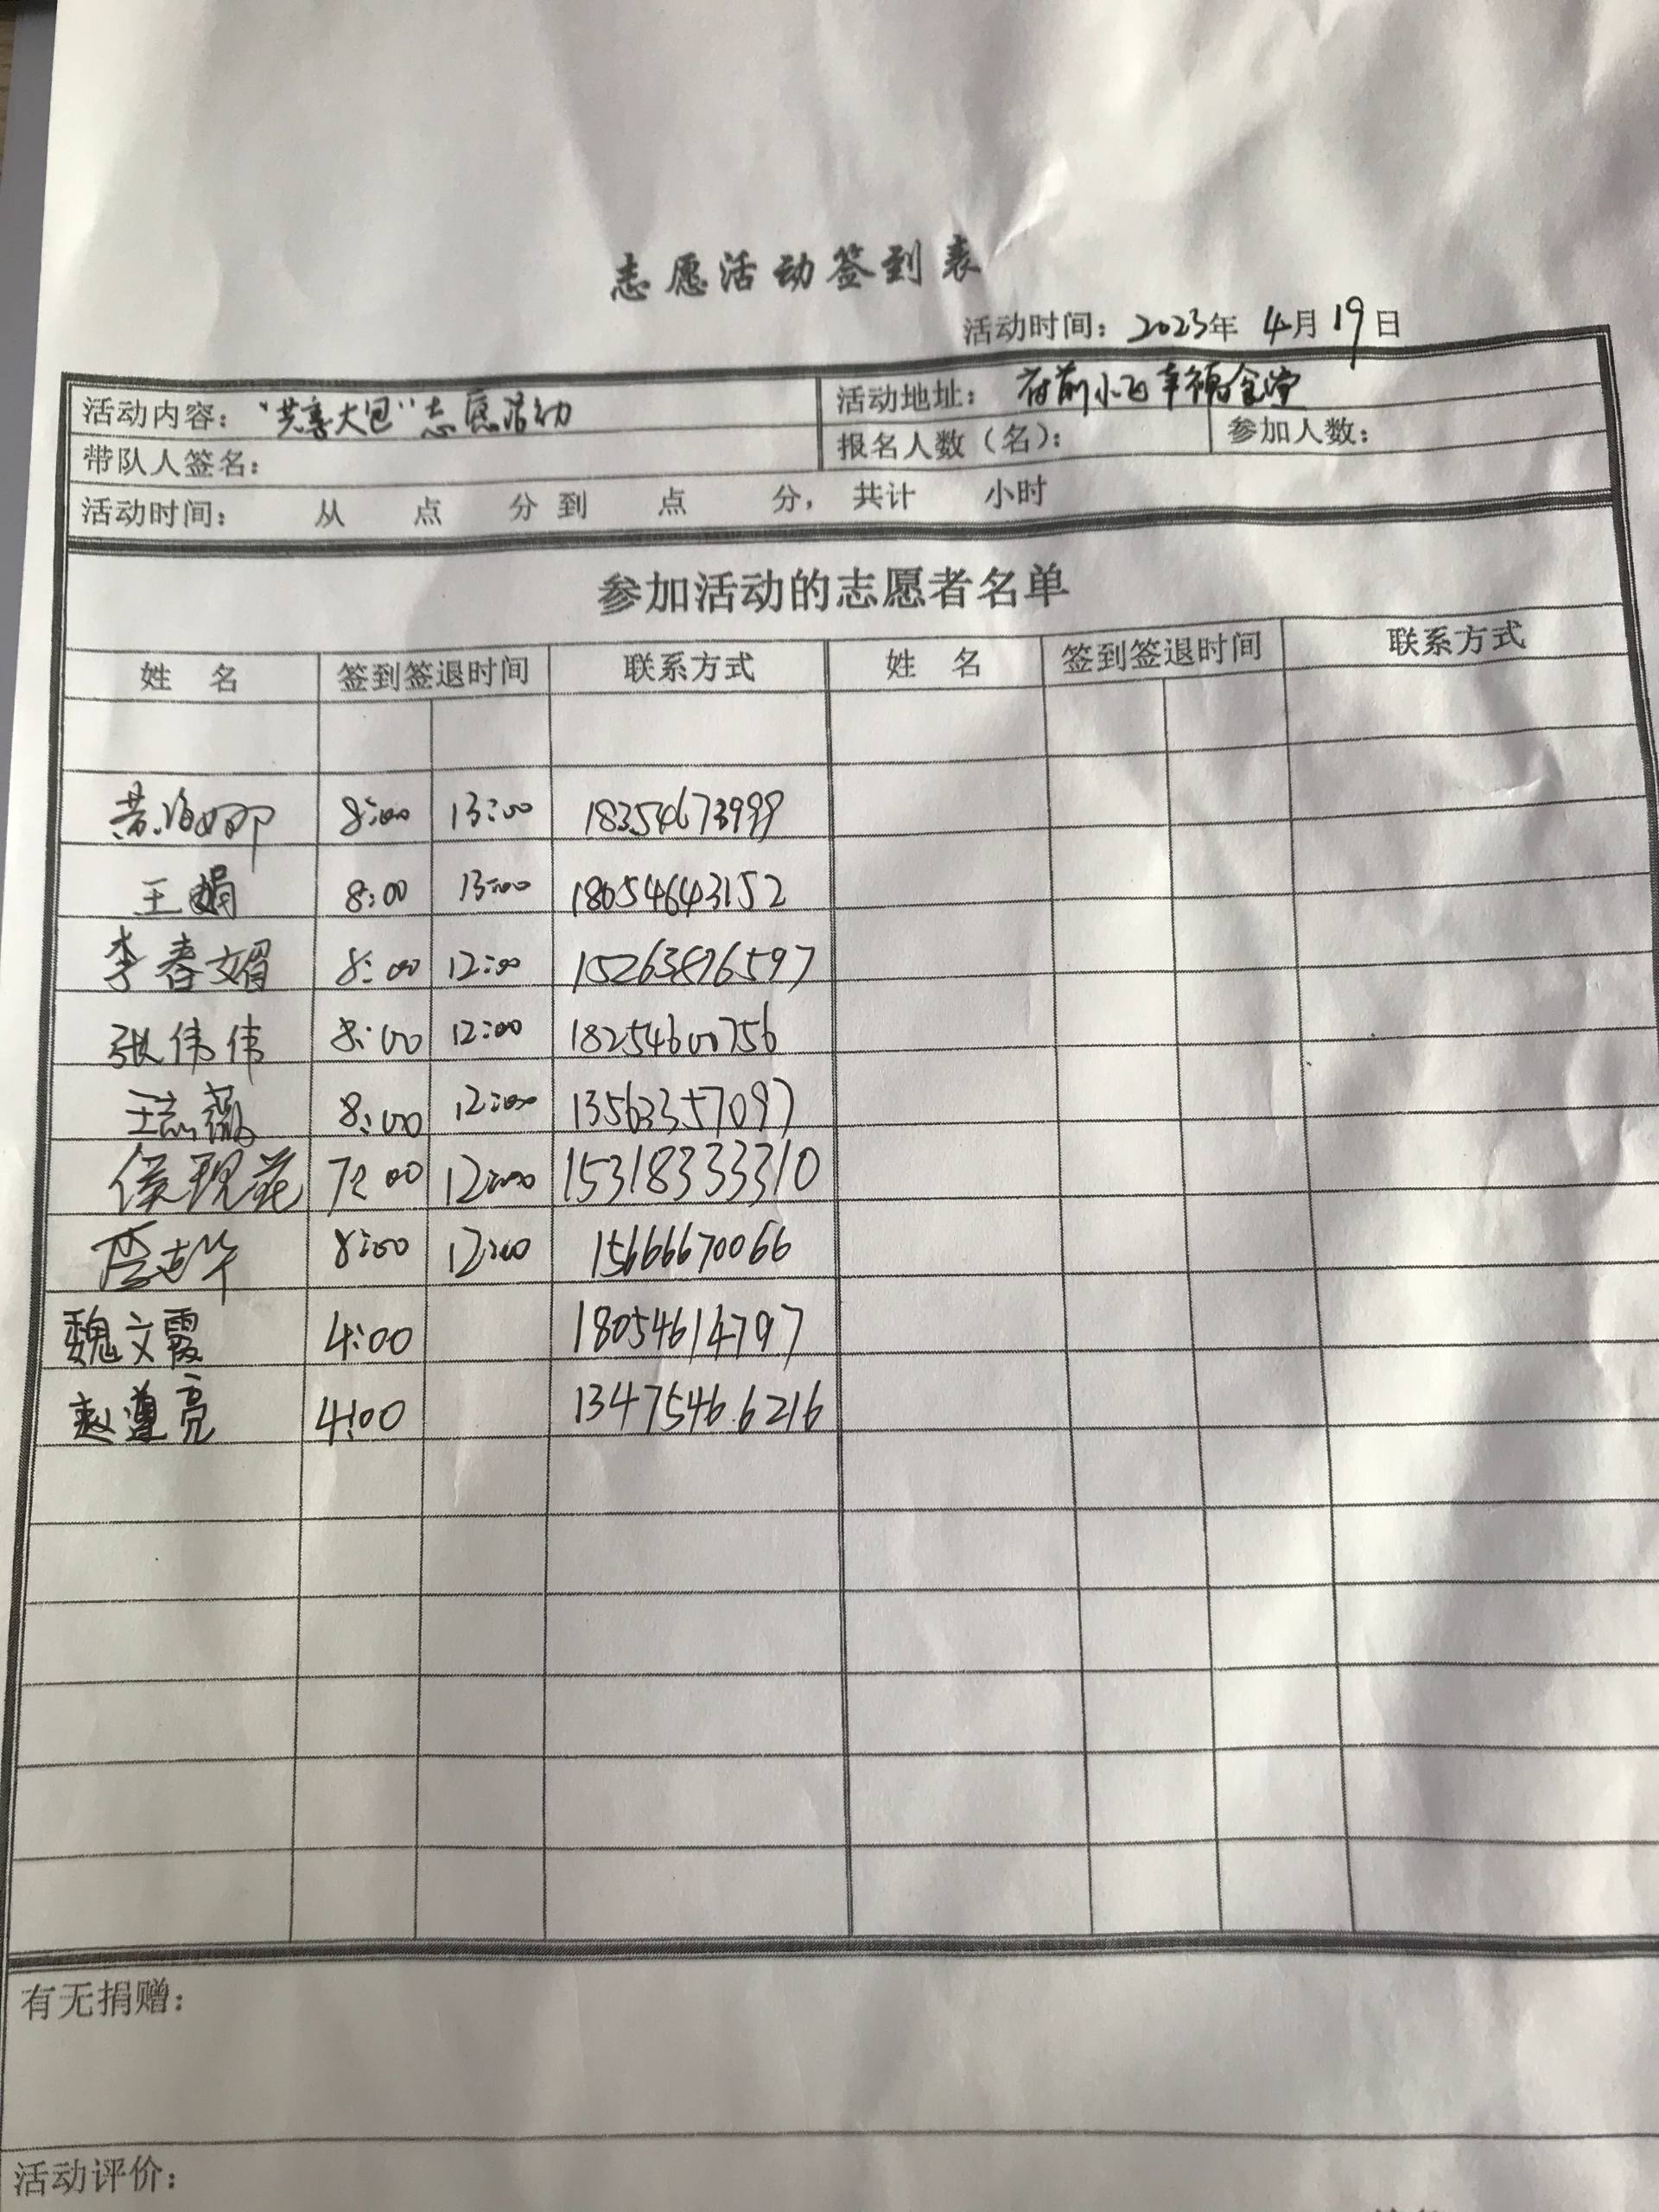 志愿活动签到表
活动时间：2023年 4月19日
活动内容："共享大包"志愿活动 活动地址：府前小区幸福食堂
带队人签名： 报名人数（名）： 参加人数：
活动时间： 从 点 分到 点 分，共计 小时
参加活动的志愿者名单
姓 名 签到签退时间 联系方式 姓 名 签到签退时间 联系方式
8:00 13:00 18354673999
王娟 8:00 13:00 18654643152
李春媚 8:00 12:00 15263896597
张伟伟 8:00 12:00 18254600756
王志薇 8:00 12:00 13563357097
侯现花 7:00 12:00 15318333310
8:00 12:00 15666670066
魏文霞 4:00 18054614797
赵遵亮 4:00 13475466216
有无捐赠：
活动评价：